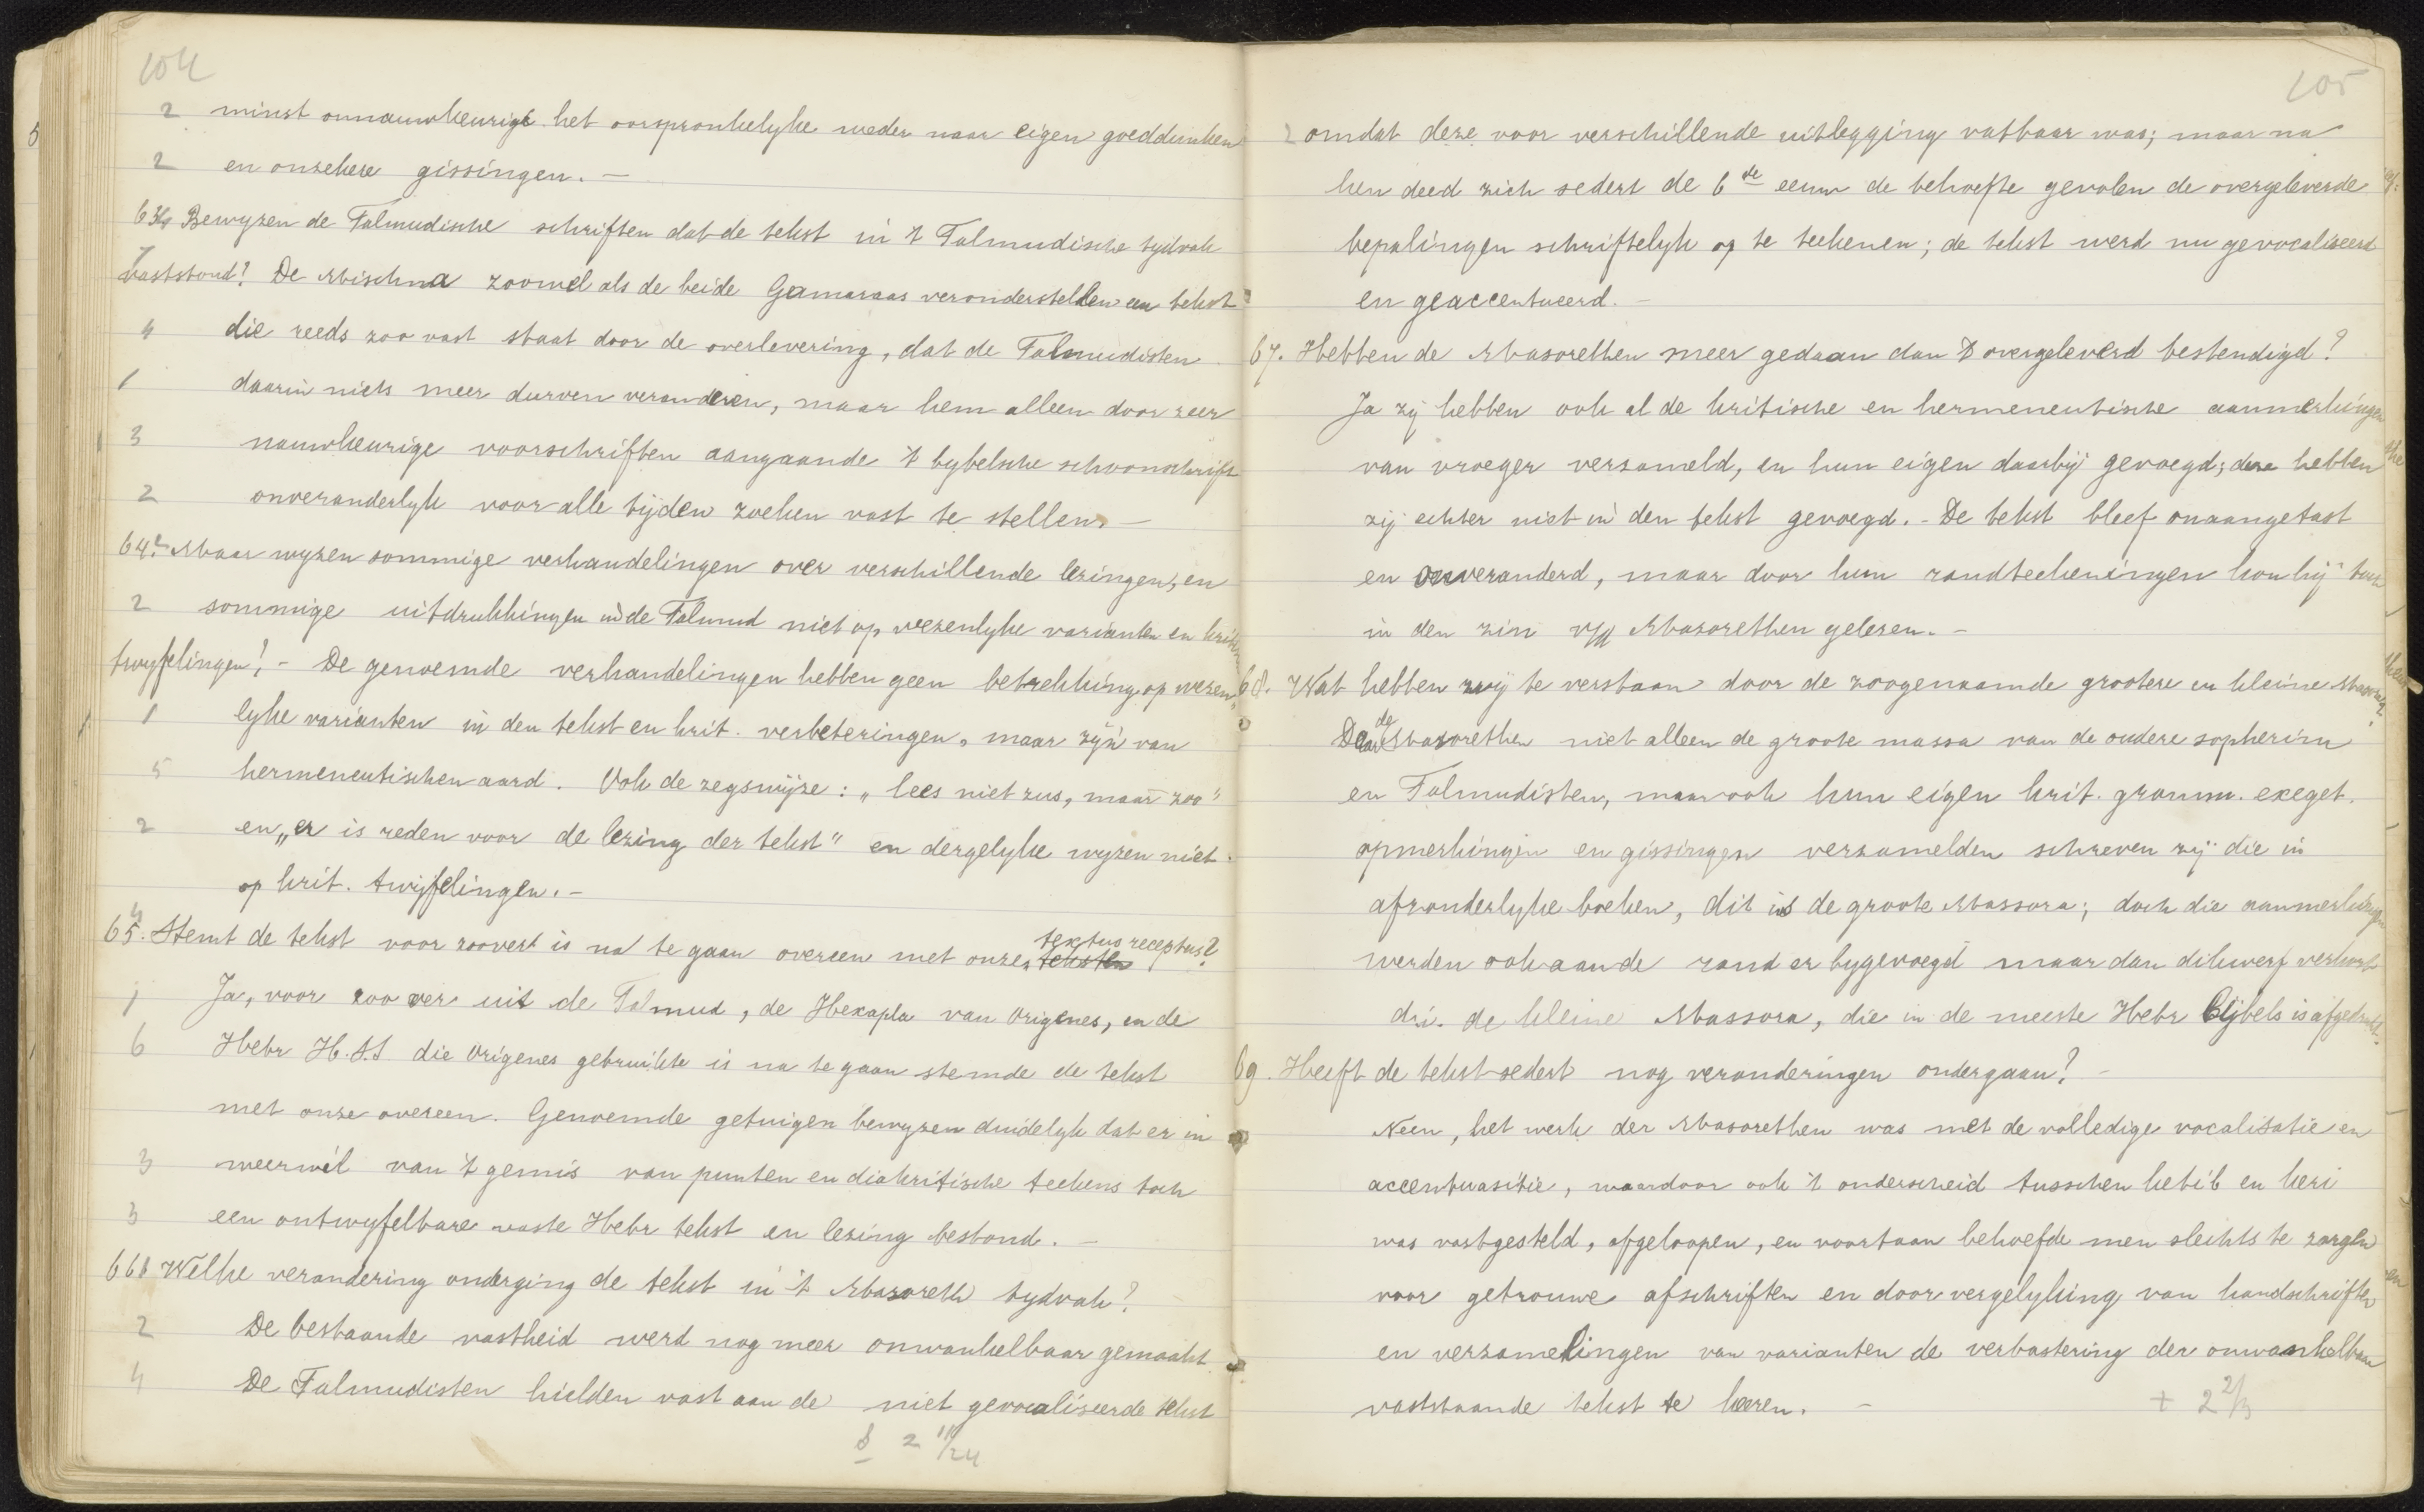 104
2 minst onnauwkeurige het oorspronkelyke weder naar eigen goeddunken
2 en onzekere gissingen. —
63 Bewyzen de Talmudische schriften dat de tekst in 't Talmudische tydvak
vaststond? De Mischna zoowel als de beide Gamaraas veronderstellen een tekst
4 die reeds zoo vast staat door de overlevering, dat de Talmudisten
1 daarin niets meer durven veranderen, maar hem alleen door zeer
3 nauwkeurige voorschriften aangaande 't bybelsche schoonschrift
2 onveranderlyk voor alle tijden zoeken vast te stellen. —
64. Maar wyzen sommige verhandelingen over verschillende lezingen, en
2 sommige uitdrukkingen in de Talmud niet op wezenlyke varianten en
twyfelingen? - De genoemde verhandelingen hebben geen betrekking op wezen-
1 lyke varianten in den tekst en krit. verbeteringen, maar zijn van
5 hermeneutischen aard. Ook de zegswijze: „lees niet zus, maar zoo"
2 en „er is reden voor de lezing der tekst" en dergelyke wyzen niet
op krit. twijfelingen. -
65. Stemt de tekst voor zoover 't is na te gaan overeen met onze teksten textus receptus?
1 Ja, voor zoo ver uit de Talmud, de Hexapla van Origenes, en de
6 Hebr H.S.S die Origenes gebruikte is na te gaan stemde de tekst
met onze overeen. Genoemde getuigen bewyzen duidelyk dat er in
3 weerwil van 't gemis van punten en diakritische teekens toch
3 een ontwyfelbare vaste Hebr tekst en lezing bestond. —
66 Welke verandering onderging de tekst in 't Masoreth tydvak?
2 De bestaande vastheid werd nog meer onwankelbaar gemaakt.
4 De Talmudisten hielden vast aan de niet gevocaliseerde tekst
2 11/24
105
2 omdat deze voor verschillende uitlegging vatbaar was; maar na
hen deed zich sedert de 6de eeuw de behoefte gevolen de overgeleverde
bepalingen schriftelyk op te teekenen; de tekst werd nu gevocaliseerd
en geaccentueerd. -
67. Hebben de Masorethen meer gedaan dan 't overgeleverd bestendigd?
Ja zij hebben ook al de kritische en hermeneutische aanmerkingen
van vroeger verzameld, en hun eigen daarbij gevoegd; deze hebben
zij echter niet in den tekst gevoegd. - De tekst bleef onaangetast
en onveranderd, maar door hun randteekeningen kon hij toch
in den zin v/d Masorethen gelezen. -
68. Wat hebben wij te verstaan door de zoogenaamde grootere en kleine Massora?
Daar de Masorethen niet alleen de groote massa van de oudere sopherim
en Talmudisten, maar ook hun eigen krit. gramm. exeget.
opmerkingen en gissingen verzamelden schreven zij die in
afzonderlyke boeken, dit is de groote Massora; doch die aanmerkingen
werden ook aan de rand er bygevoegd maar dan dikwerf verkort
d.i. de kleine Massora, die in de meeste Hebr Bijbels is afgedrukt.
69. Heeft de tekst sedert nog veranderingen ondergaan? -
Neen, het werk der Masorethen was met de volledige vocalisatie en
accentuasitie, waardoor ook 't onderscheid tusschen ketib en keri
was vastgesteld, afgeloopen, en voortaan behoefde men slechts te zorgen
voor getrouwe afschriften en door vergelyking van handschriften
en verzamelingen van varianten de verbastering der onwankelbaar
vaststaande tekst te keeren. -
+ 2 2/3